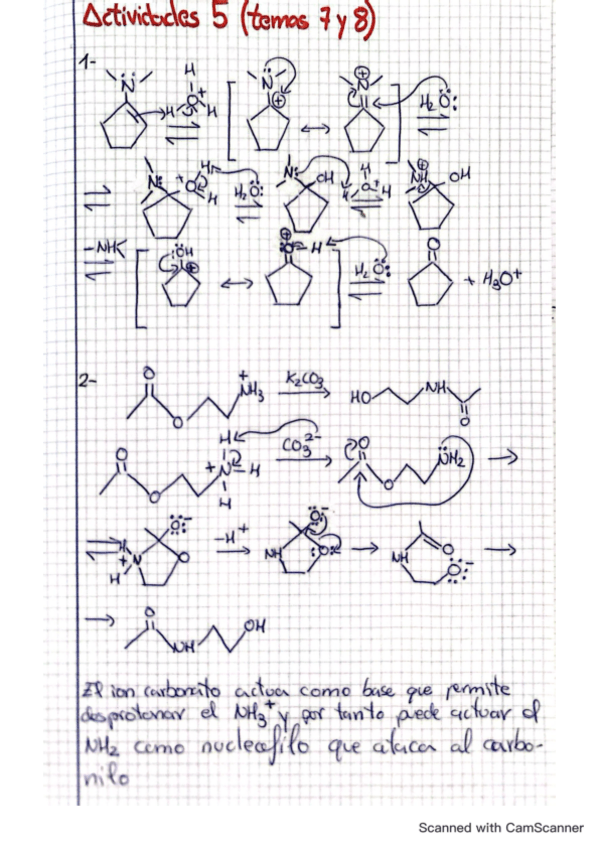 Actividades 5 (temas 7 y 8)
1-
H₂Ö:
H₂Ö:
OH
OH
-NH
H₂Ö:
+ H₃O⁺
2-
NH₃ K₂CO₃ HO NH
O
CO₃²⁻ �NH₂
-H⁺
NH
NH
O
NH OH
El ion carbonato actua como base que permite
desprotonar el NH₃⁺ y por tanto puede actuar el
NH₂ como nucleofilo que ataca al carbo-
nilo
Scanned with CamScanner